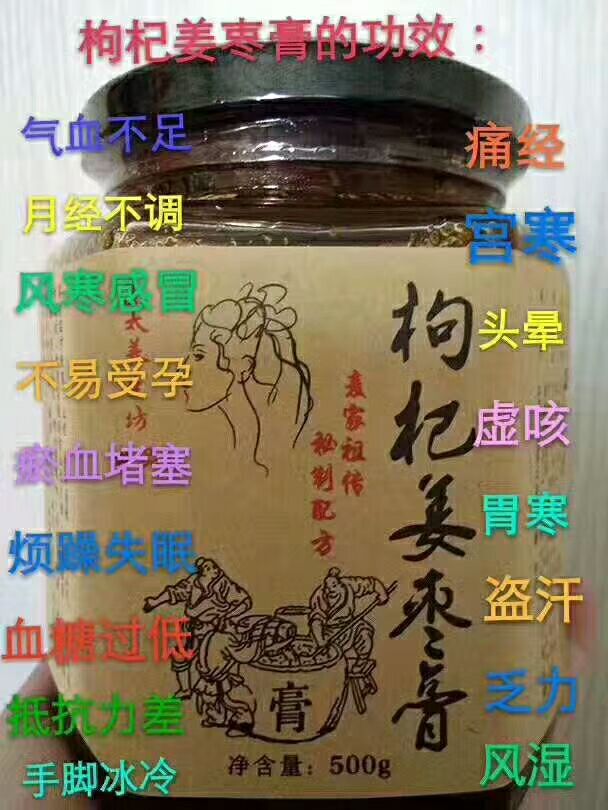 枸杞姜枣膏的功效：
气血不足
月经不调
风寒感冒
不易受孕
瘀血堵塞
烦躁失眠
血糖过低
抵抗力差
手脚冰冷
痛经
宫寒
头晕
虚咳
胃寒
盗汗
乏力
风湿
枸杞姜枣膏
袁家祖传
秘制配方
坊
膏
净含量：500g